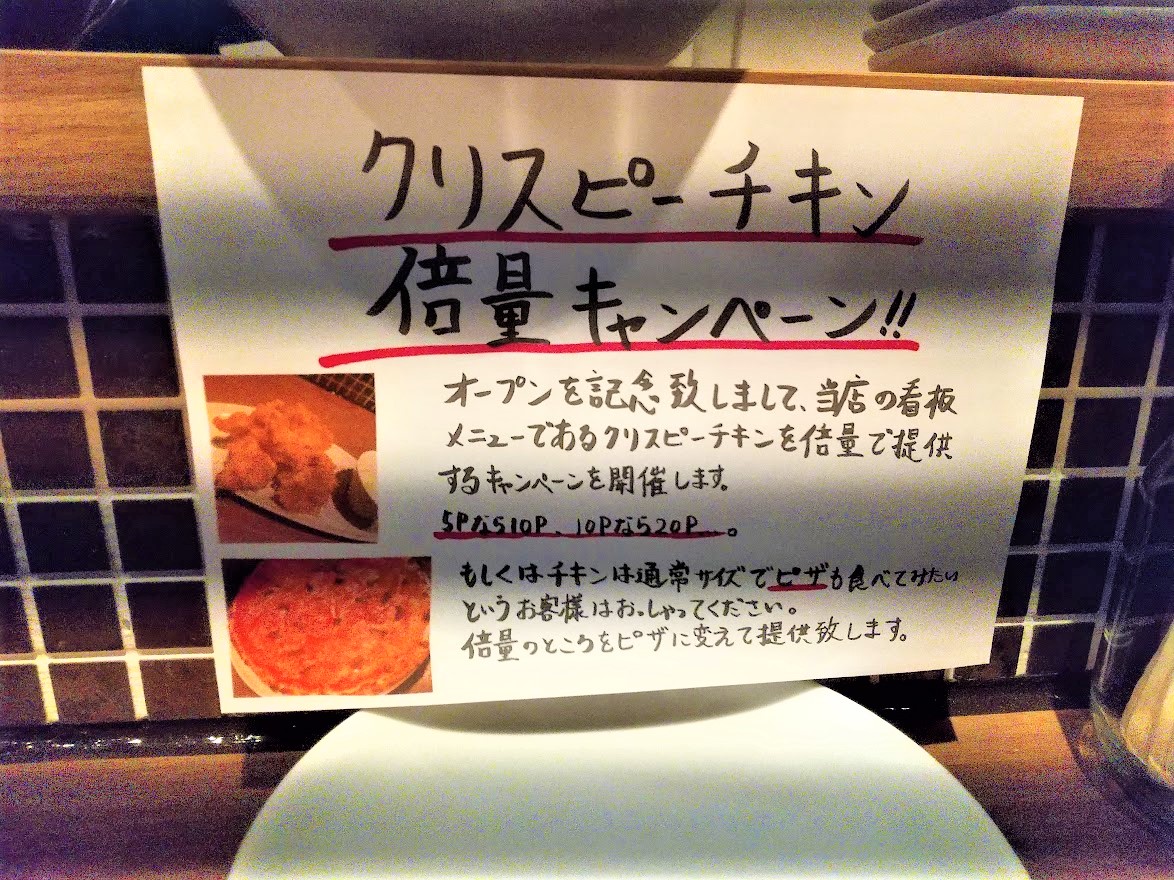 クリスピーチキン
倍量キャンペーン!!
オープンを記念致しまして、当店の看板
メニューであるクリスピーチキンを倍量で提供
するキャンペーンを開催します。
5Pなら10P、10Pなら20P…。
もしくはチキンは通常サイズでピザも食べてみたい
というお客様はおっしゃってください。
倍量のところをピザに変えて提供致します。